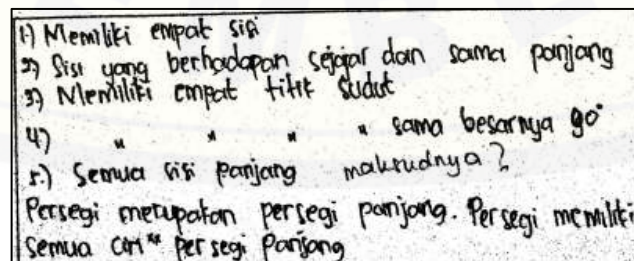 1.) Memiliki empat sisi
2) Sisi yang berhadapan sejajar dan sama panjang
3.) Memiliki empat titik sudut
4) " " " " sama besarnya 90°
5.) Semua sisi panjang maksudnya?
Persegi merupakan persegi panjang. Persegi memiliki
semua ciri" persegi panjang